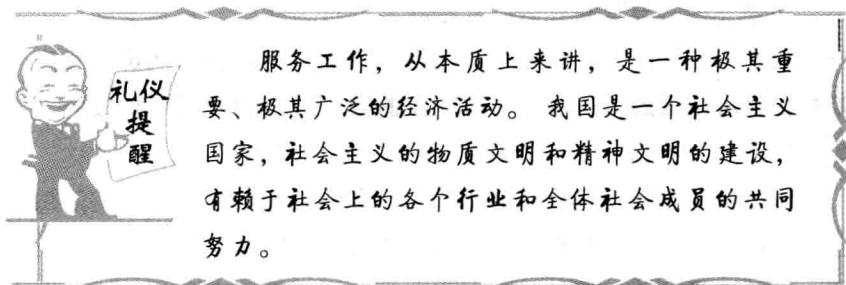 礼仪
提
醒
服务工作，从本质上来讲，是一种极其重
要、极其广泛的经济活动。我国是一个社会主义
国家，社会主义的物质文明和精神文明的建设，
有赖于社会上的各个行业和全体社会成员的共同
努力。